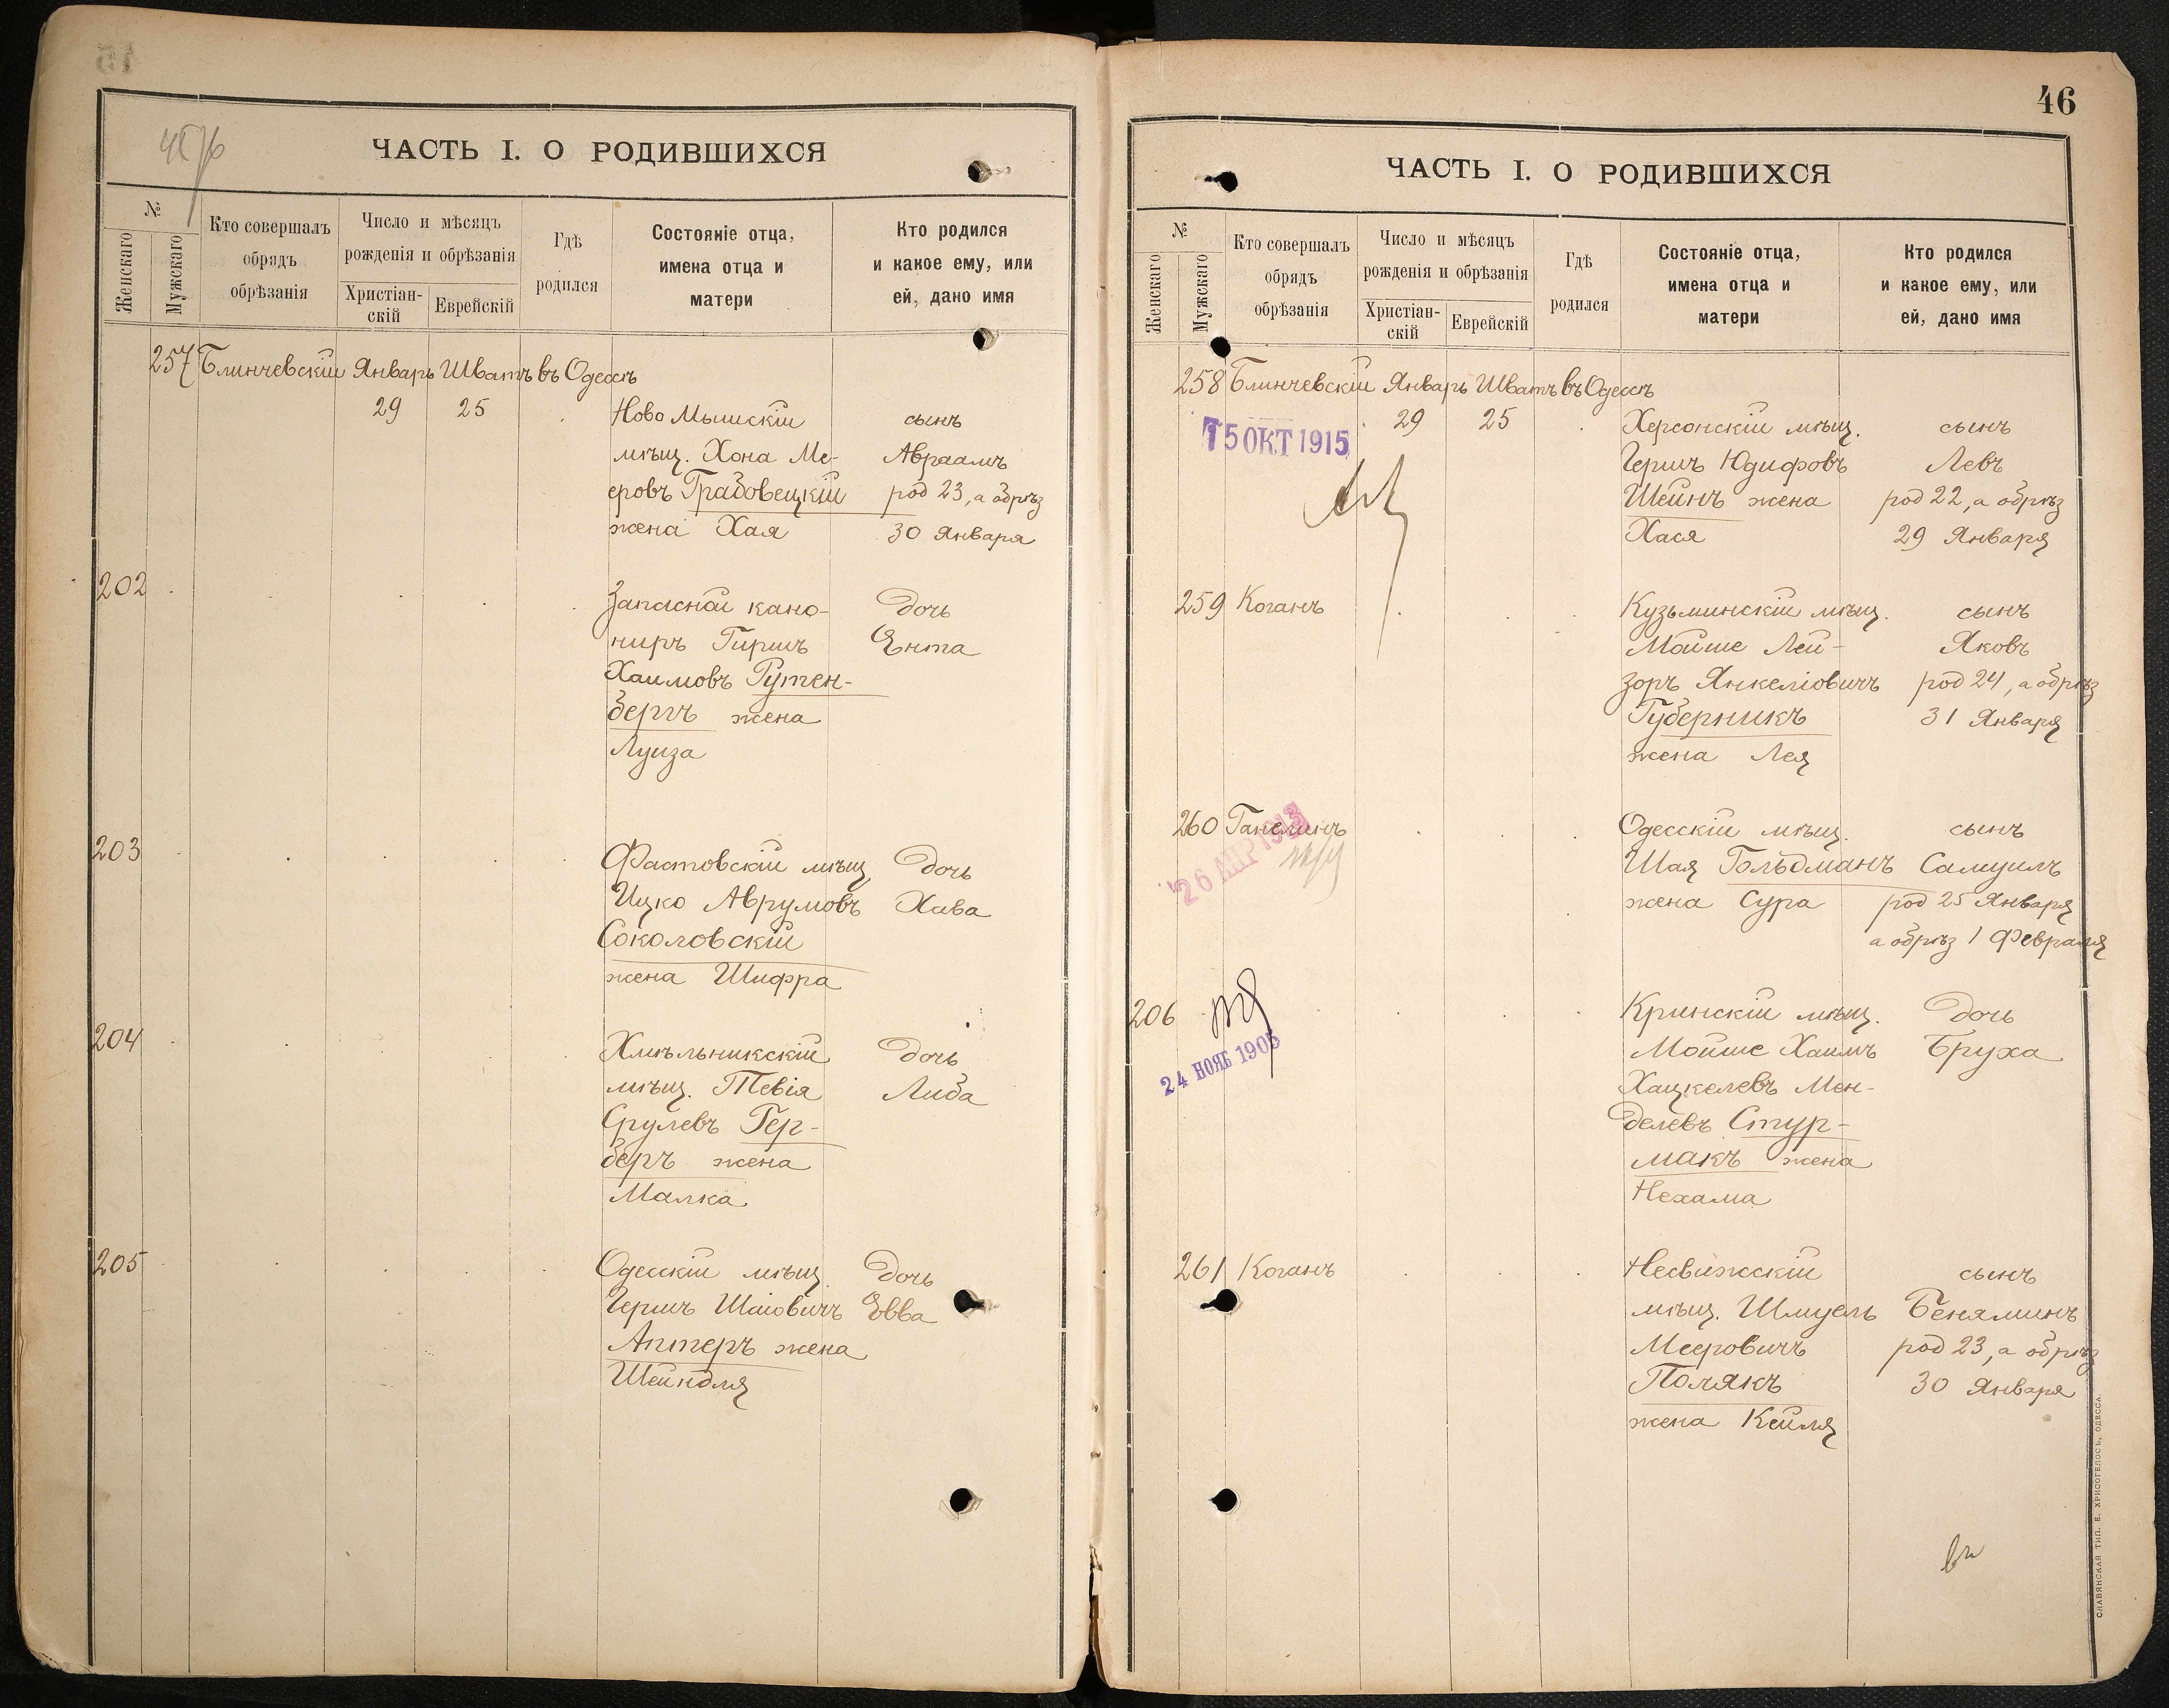 ЧАСТЬ I. О РОДИВШИХСЯ
№
Женскаго
Мужскаго
Кто совершалъ
обрядъ
обрѣзанія
Число и мѣсяцъ
рожденія и обрѣзанія
Христіан-
скій
Еврейскій
Гдѣ
родился
Состояніе отца,
имена отца и
матери
Кто родился
и какое ему, или
ей, дано имя
257 Блинчевскій Январь Шватъ въ Одессѣ
29 25 Ново Мышскій сынъ
мѣщ. Хона Ме- Авраамъ
еровъ Грабовецкій род 23, а обрѣз
жена Хая 30 Января
202 Запасной кано- дочь
ниръ Гиршъ Ента
Хаимовъ Рутен-
бергъ жена
Луиза
203 Фастовскій мѣщ. дочь
Ицко Аврумовъ Хава
Соколовскій
жена Шифра
204 Хмѣльникскій дочь
мѣщ. Тевія Либа
Срулевъ Гер-
беръ жена
Малка
205 Одесскій мѣщ. дочь
Гершъ Шаіовичъ Евва
Аптеръ жена
Шейндля
46
ЧАСТЬ I. О РОДИВШИХСЯ
№
Женскаго
Мужскаго
Кто совершалъ
обрядъ
обрѣзанія
Число и мѣсяцъ
рожденія и обрѣзанія
Христіан-
скій
Еврейскій
Гдѣ
родился
Состояніе отца,
имена отца и
матери
Кто родился
и какое ему, или
ей, дано имя
258 Блинчевскій Январь Шватъ въ Одессѣ
29 25 Херсонскій мѣщ. сынъ
5 ОКТ 1915
Гершъ Юдифовъ Левъ
Шейнъ жена род 22, а обрѣз
Хася 29 Января
259 Коганъ Кузьминскій мѣщ. сынъ
Мойше Лей- Яковъ
зоръ Янкеліовичъ род 24, а обрѣз
Губерникъ 31 Января
жена Лея
260 Ганелинъ Одесскій мѣщ. сынъ
26 АПР 1913
Шая Гольдманъ Самуилъ
жена Сура род 25 Января
а обрѣз 1 Февраля
206 Кринскій мѣщ. дочь
24 НОЯБ 1905
Мойше Хаимъ Бруха
Хацкелевъ Мен-
делевъ Стур-
макъ жена
Нехама
261 Коганъ Несвижскій сынъ
мѣщ. Шмуель Беняминъ
Мееровичъ род 23, а обрѣз
Полякъ 30 Января
жена Кейля
СЛАВЯНСКАЯ ТИП. Е. ХРИСОГЕЛОСЪ, ОДЕССА.